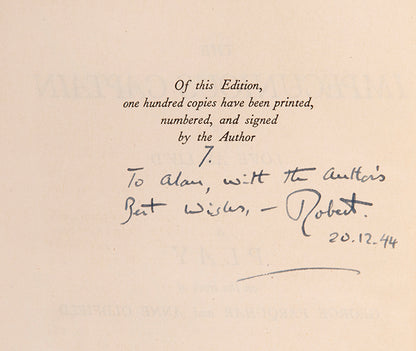 Of this Edition,
one hundred copies have been printed,
numbered, and signed
by the Author
7.
To Alan, with the Author's
Best Wishes, — Robert.
20.12.44